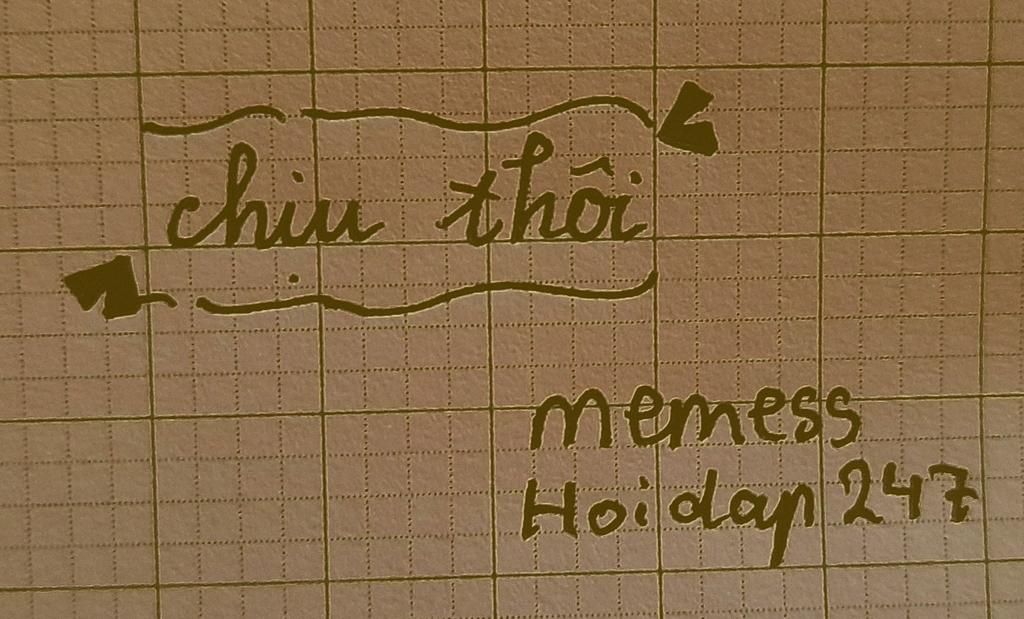 chịu thôi
memess
Hoidap 247